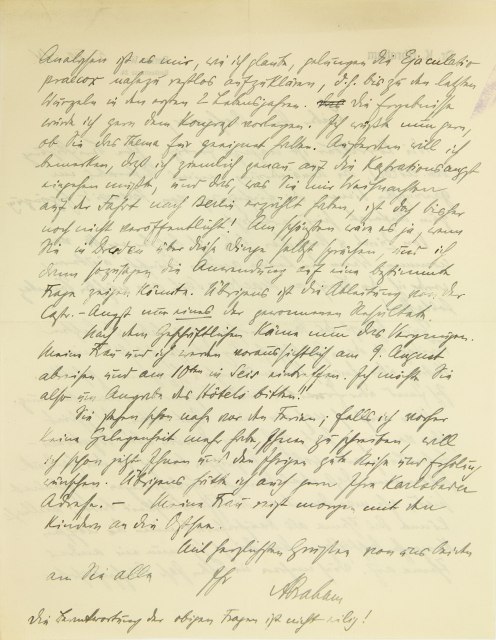 Analysen ist es mir, wie ich glaube, gelungen die Ejaculatio
praecox nahezu restlos aufzuklären, d.h. bis zu den letzten
Wurzeln in den ersten 2 Lebensjahren. die Ergebnisse
würde ich gern dem Kongress vorlegen. Ich wüsste nun gern,
ob Sie das Thema für geeignet halten. Außerdem will ich
bemerken, dass ich ziemlich genau auf die Kastrationsangst
eingehen müsste, und das, was Sie mir Weihnachten
auf der Fahrt nach Berlin erzählt haben, ist doch bisher
noch nicht veröffentlicht! Am schönsten wäre es ja, wenn
Sie in Dresden über diese Dinge selbst sprächen und ich
dann sozusagen die Anwendung auf eine bestimmte
Frage zeigen könnte. Übrigens ist die Ableitung von der
Castr.-Angst nur eines der gewonnenen Resultate.
Nach dem Geschäftlichen käme nun das Vergnügen.
Meine Frau und ich werden voraussichtlich am 9. August
abreisen und am 10ten in Seis eintreffen. Ich möchte Sie
also um Angabe des Hôtels bitten!
Sie stehen schon nahe vor den Ferien; falls ich vorher
keine Gelegenheit mehr habe, Ihnen zu schreiben, will
ich schon jetzt Ihnen und den Ihrigen gute Reise und Erholung
wünschen. Übrigens hätte ich auch gern Ihre Karlsbader
Adresse. — Meine Frau reist morgen mit den
Kindern an die Ostsee.
Mit herzlichsten Grüßen von uns beiden
an Sie alle
Ihr
Abraham
Die Beantwortung der obigen Fragen ist nicht eilig!